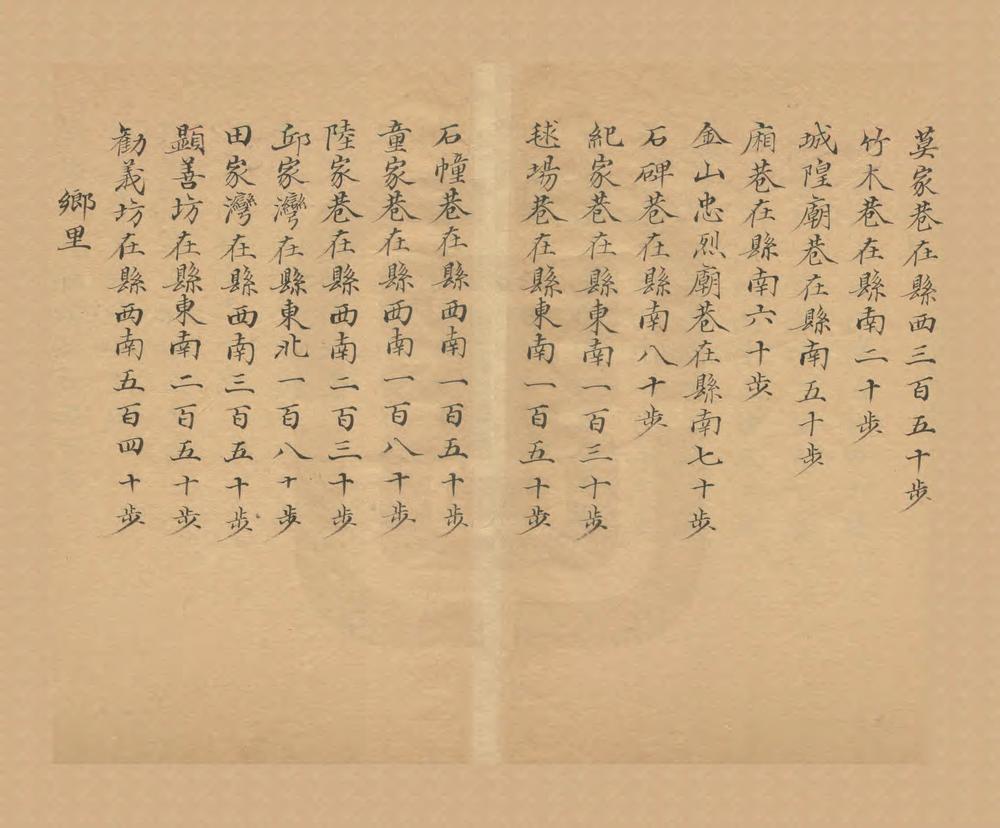 莫家巷在縣西三百五十步
竹木巷在縣南二十步
城隍廟巷在縣南五十步
廂巷在縣南六十步
金山忠烈廟巷在縣南七十步
石碑巷在縣南八十步
紀家巷在縣東南一百三十步
毬場巷在縣東南一百五十步
石幢巷在縣西南一百五十步
童家巷在縣西南一百八十步
陸家巷在縣西南二百三十步
邱家灣在縣東北一百八十步
田家灣在縣西南三百五十步
顯善坊在縣東南二百五十步
勸義坊在縣西南五百四十步
鄉里